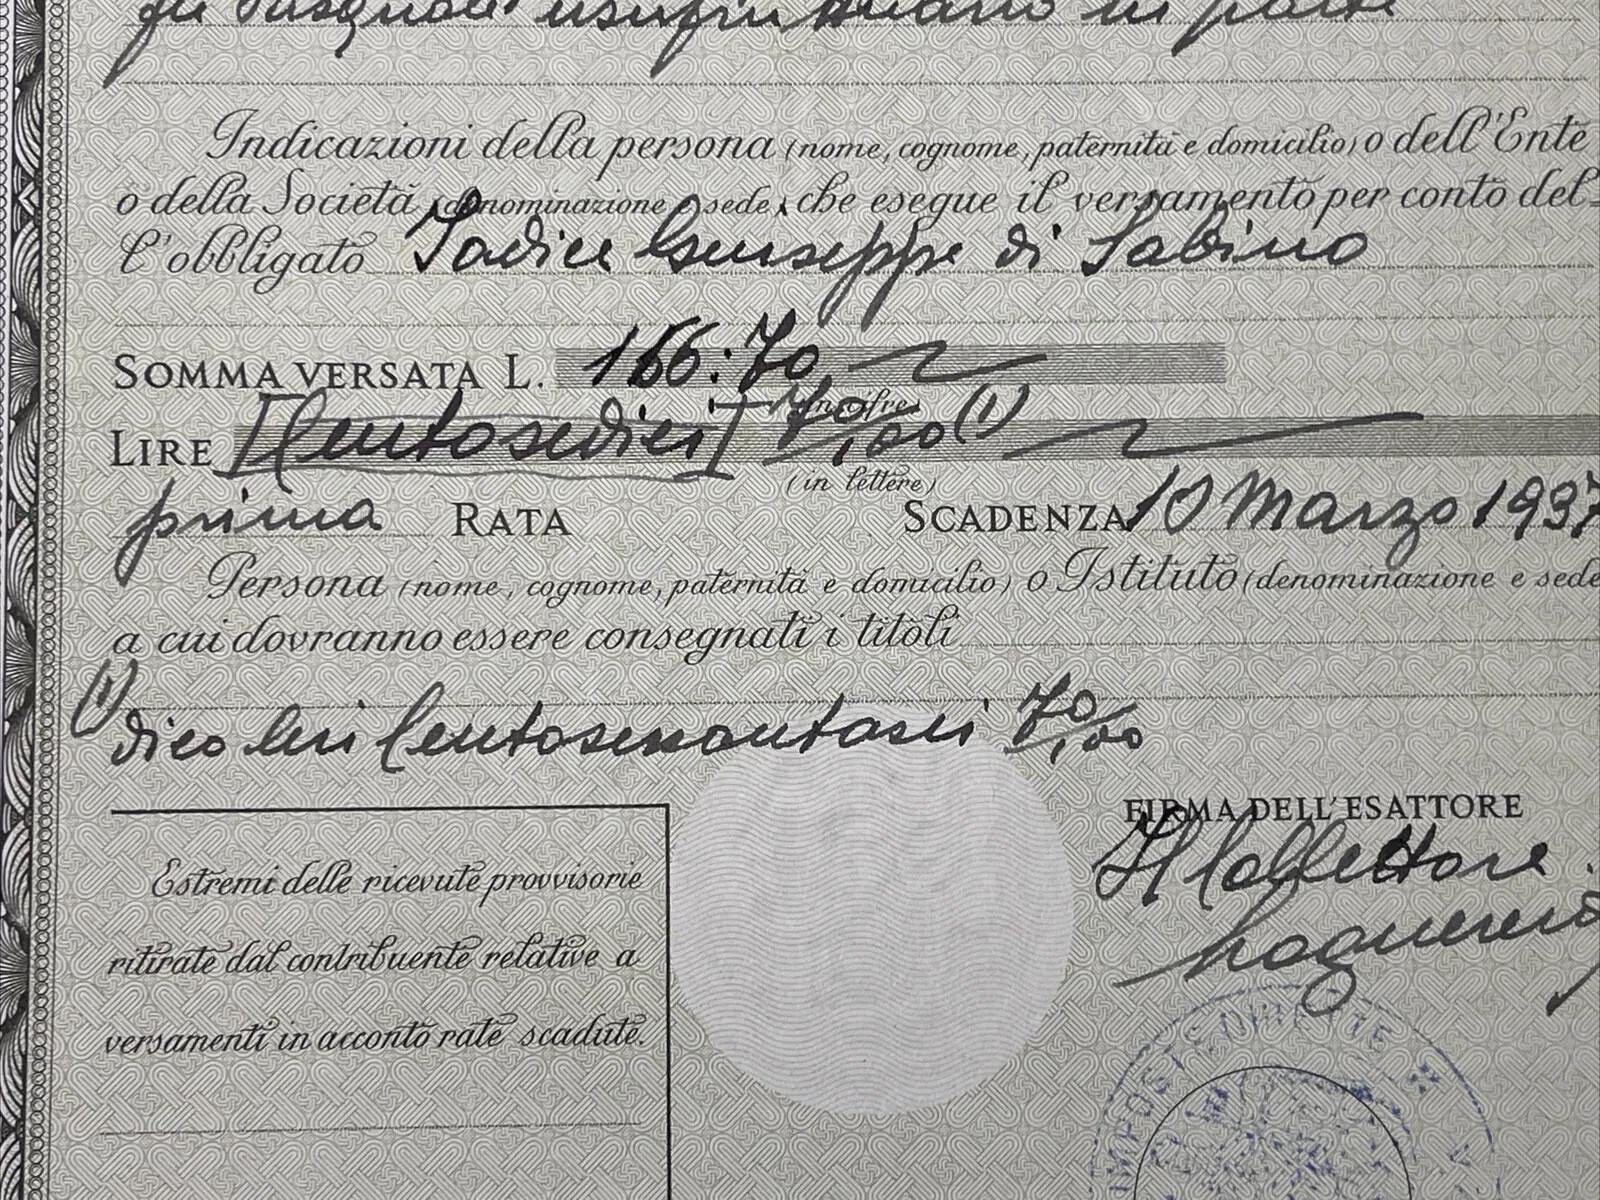 di Pasquale usufruttuario in parte
Indicazioni della persona (nome, cognome, paternità e domicilio) o dell'Ente
o della Società (denominazione e sede) che esegue il versamento per conto del-
l'obbligato Iodice Giuseppe di Sabino
SOMMA VERSATA L. 166:70
(in cifre)
LIRE [Centosedici] 70/100 (1)
(in lettere)
prima RATA SCADENZA 10 Marzo 1937
Persona (nome, cognome, paternità e domicilio) o Istituto (denominazione e sede
a cui dovranno essere consegnati i titoli
(1) dico lire Centosessantasei 70/100
FIRMA DELL'ESATTORE
Il Collettore
Estremi delle ricevute provvisorie
ritirate dal contribuente relative a
versamenti in acconto rate scadute.
IMPOSTE DIRETTE